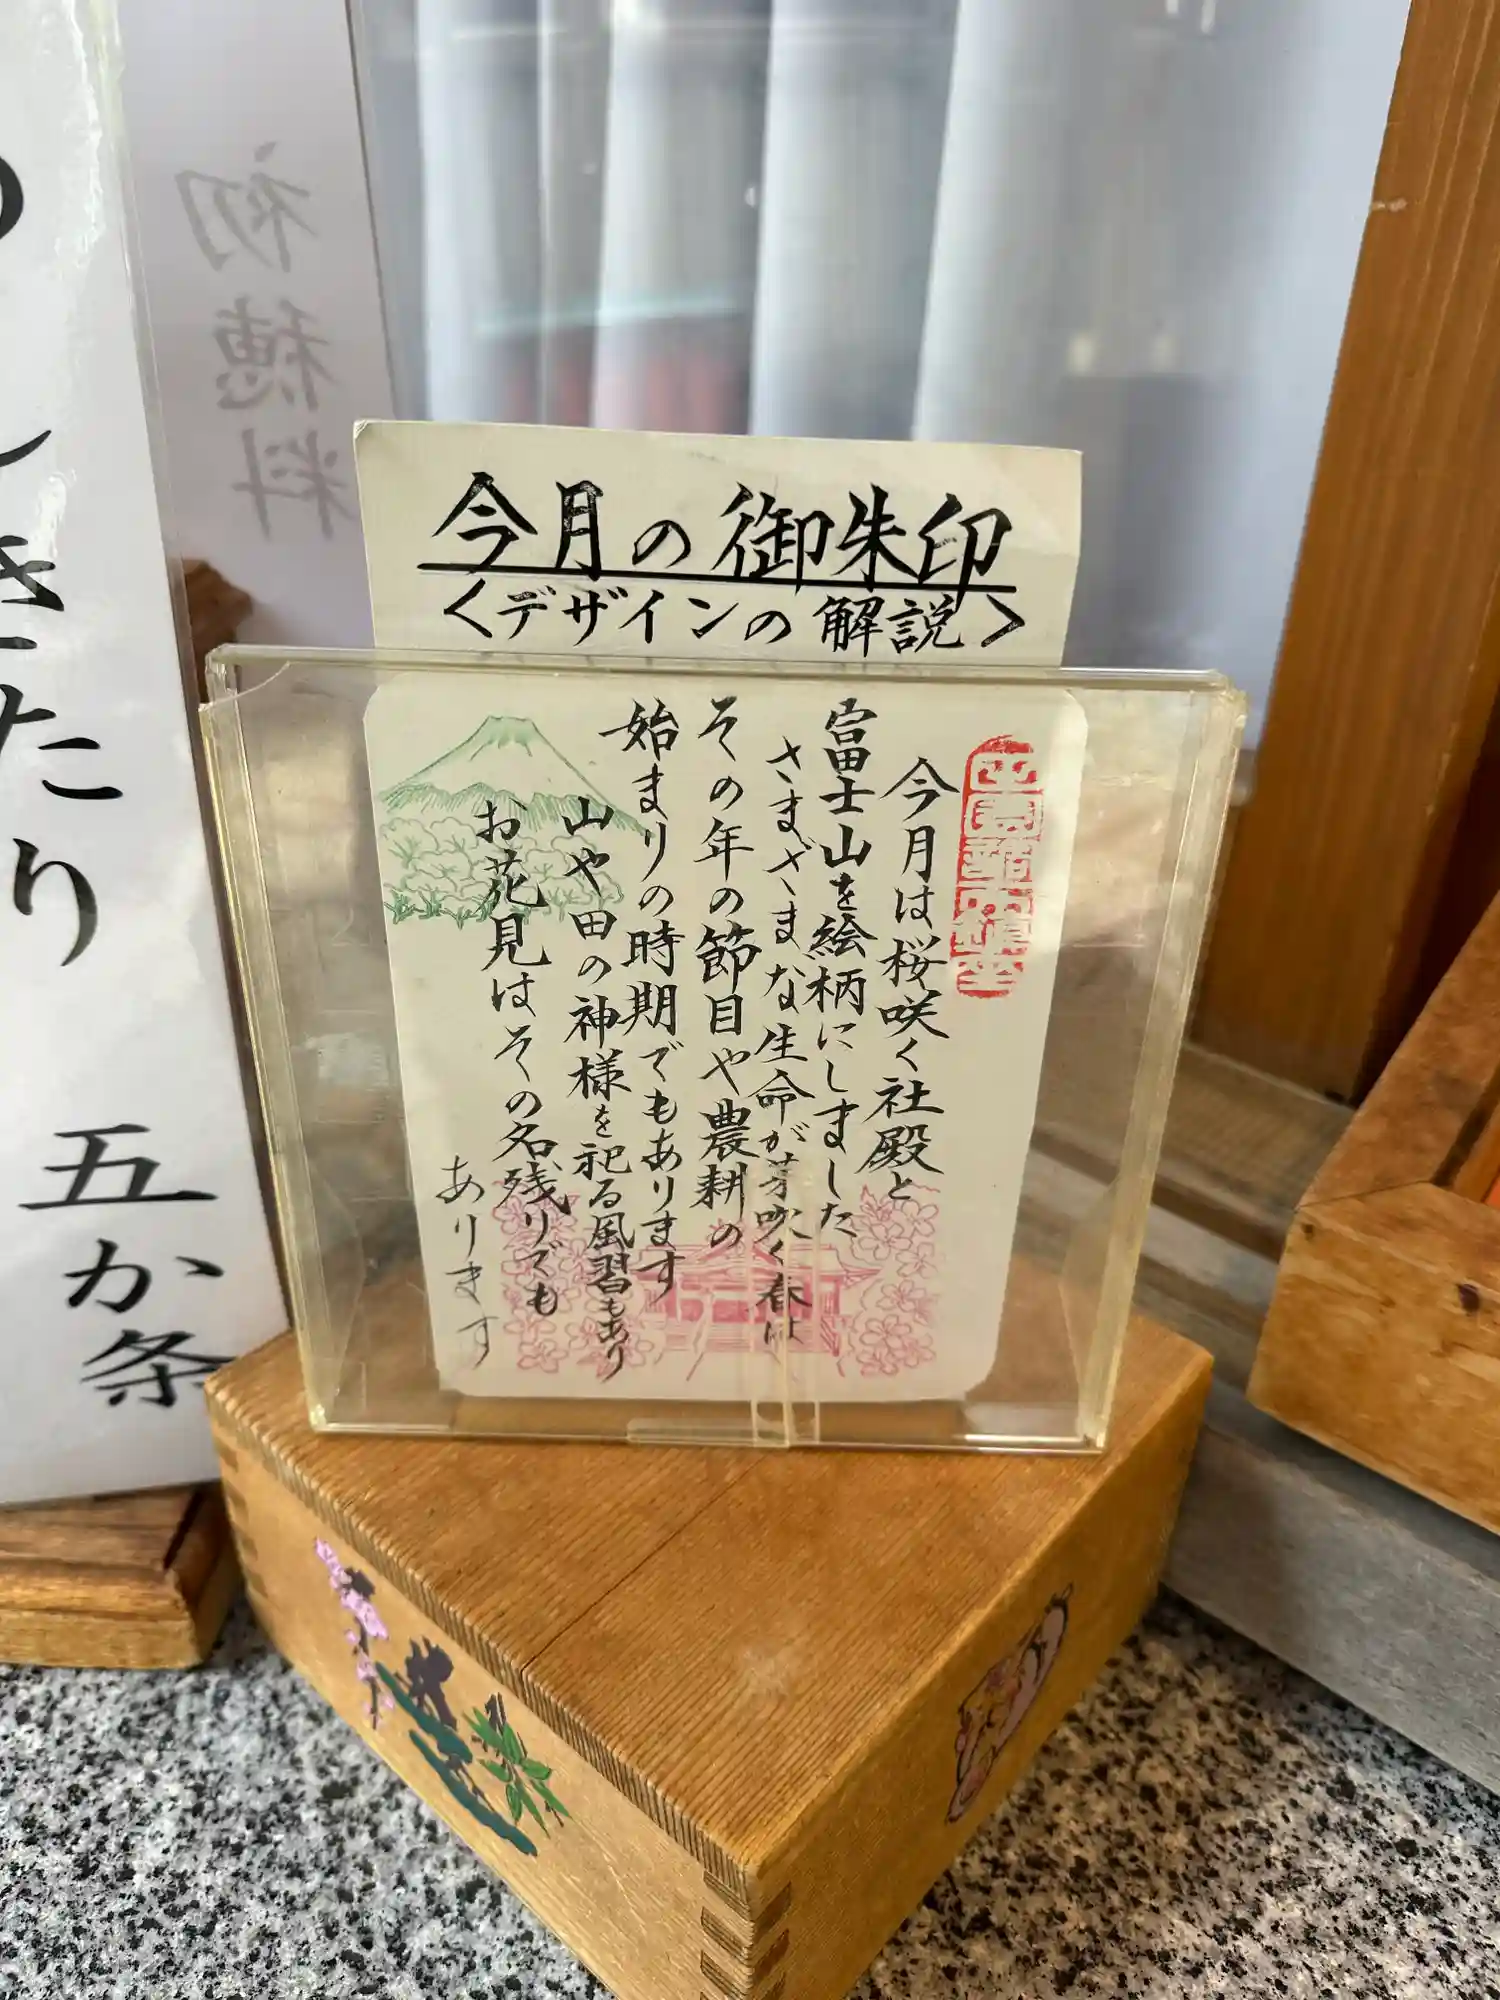 今月の御朱印
<デザインの解説>
今月は桜咲く社殿と
富士山を絵柄にしました
さまざまな生命が芽吹く春は
その年の節目や農耕の
始まりの時期でもあります
山や田の神様を祀る風習もあり
お花見はその名残りでも
あります
初穂料
きたり 五か条